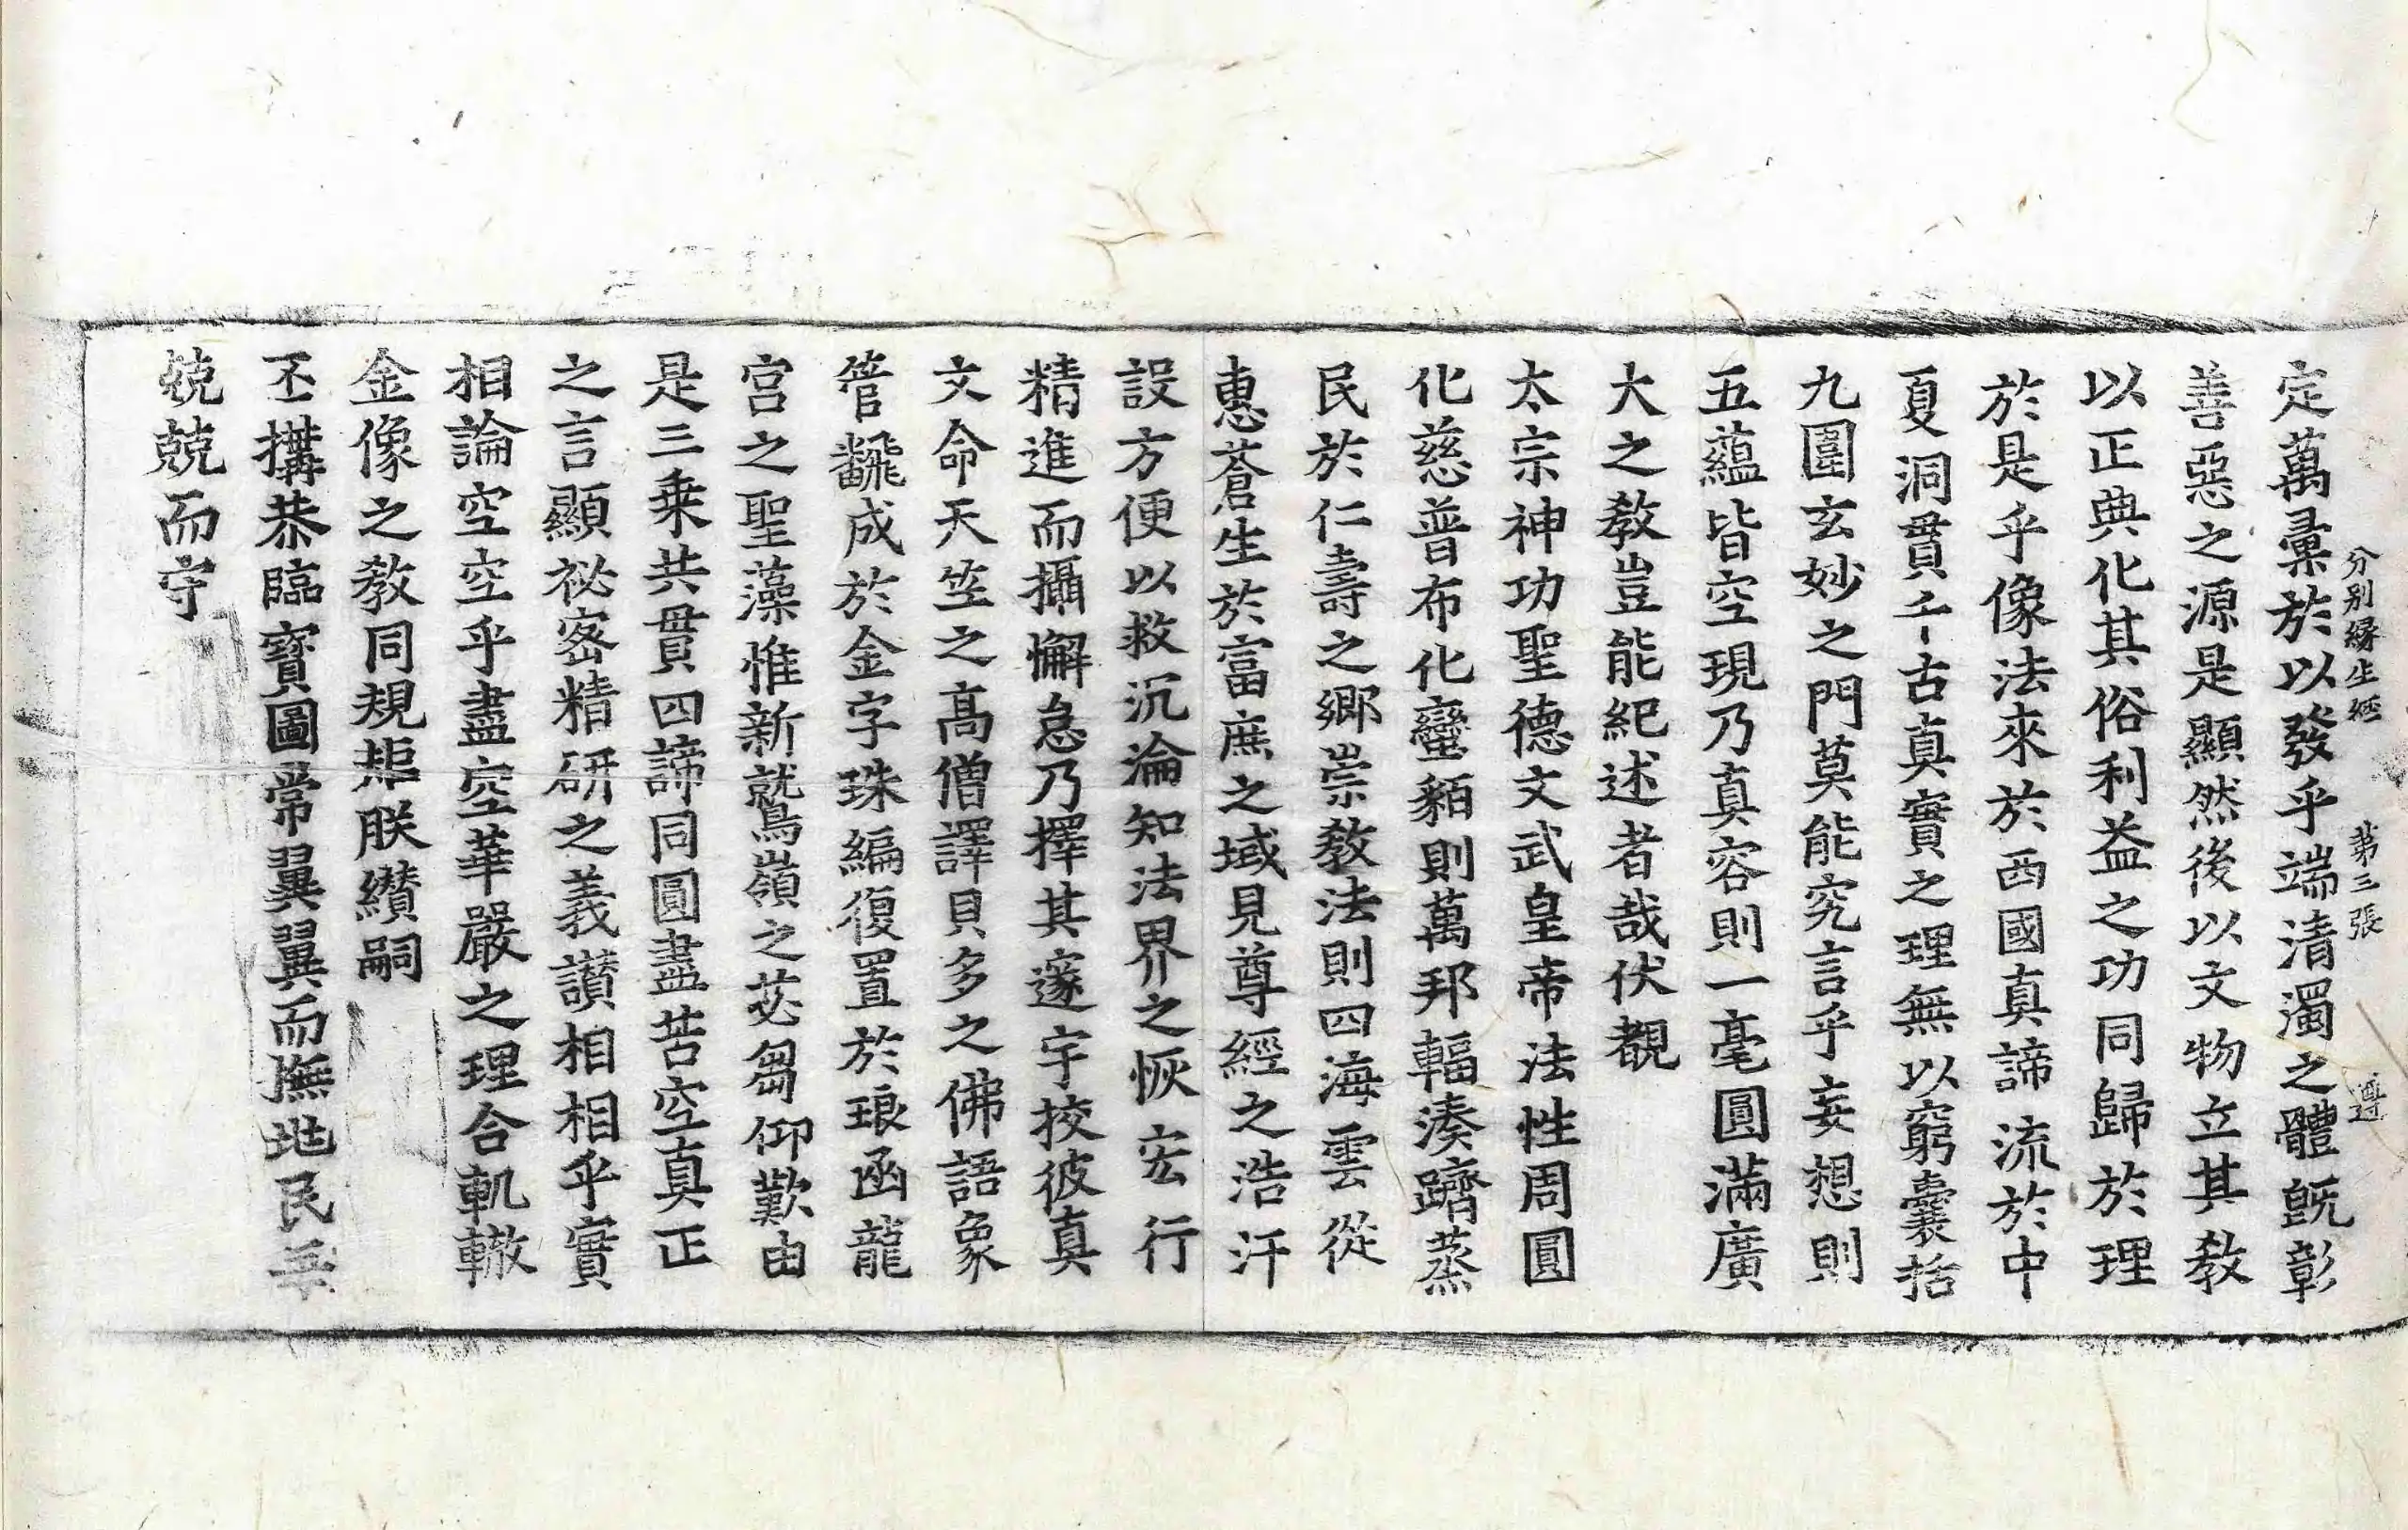 分別縁生經　第三張　遵
定萬彙於以發乎端清濁之體旣彰
善惡之源是顯然後以文物立其敎
以正典化其俗利益之功同歸於理
於是乎像法來於西國真諦流於中
夏洞貫千古真實之理無以窮囊括
九圍玄妙之門莫能究言乎妄想則
五蘊皆空現乃真容則一毫圓滿廣
大之敎豈能紀述者哉伏覩
太宗神功聖德文武皇帝法性周圓
化慈普布化蠻貊則萬邦輻湊躋蒸
民於仁壽之鄉崇敎法則四海雲從
惠蒼生於富庶之域見尊經之浩汗
設方便以救沉淪知法界之恢宏行
精進而攝懈怠乃擇其邃宇挍彼真
文命天竺之高僧譯貝多之佛語象
管飜成於金字珠編復置於琅函龍
宮之聖藻惟新鷲嶺之苾芻仰歎由
是三乗共貫四諦同圓盡苦空真正
之言顯祕宻精研之義讚相相乎實
相論空空乎盡空華嚴之理合軌轍
金像之敎同規矩朕纘嗣
丕搆恭臨寶圖常翼翼而撫地民每
兢兢而守